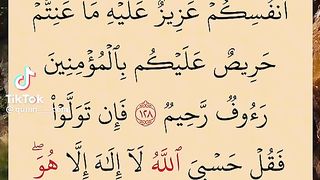 أَنفُسِكُمْ عَزِيزٌ عَلَيْهِ مَا عَنِتُّمْ
حَرِيصٌ عَلَيْكُم بِٱلْمُؤْمِنِينَ
رَءُوفٌ رَّحِيمٌ ١٢٨ فَإِن تَوَلَّوْا۟
فَقُلْ حَسْبِىَ ٱللَّهُ لَآ إِلَٰهَ إِلَّا هُوَ ۖ
TikTok